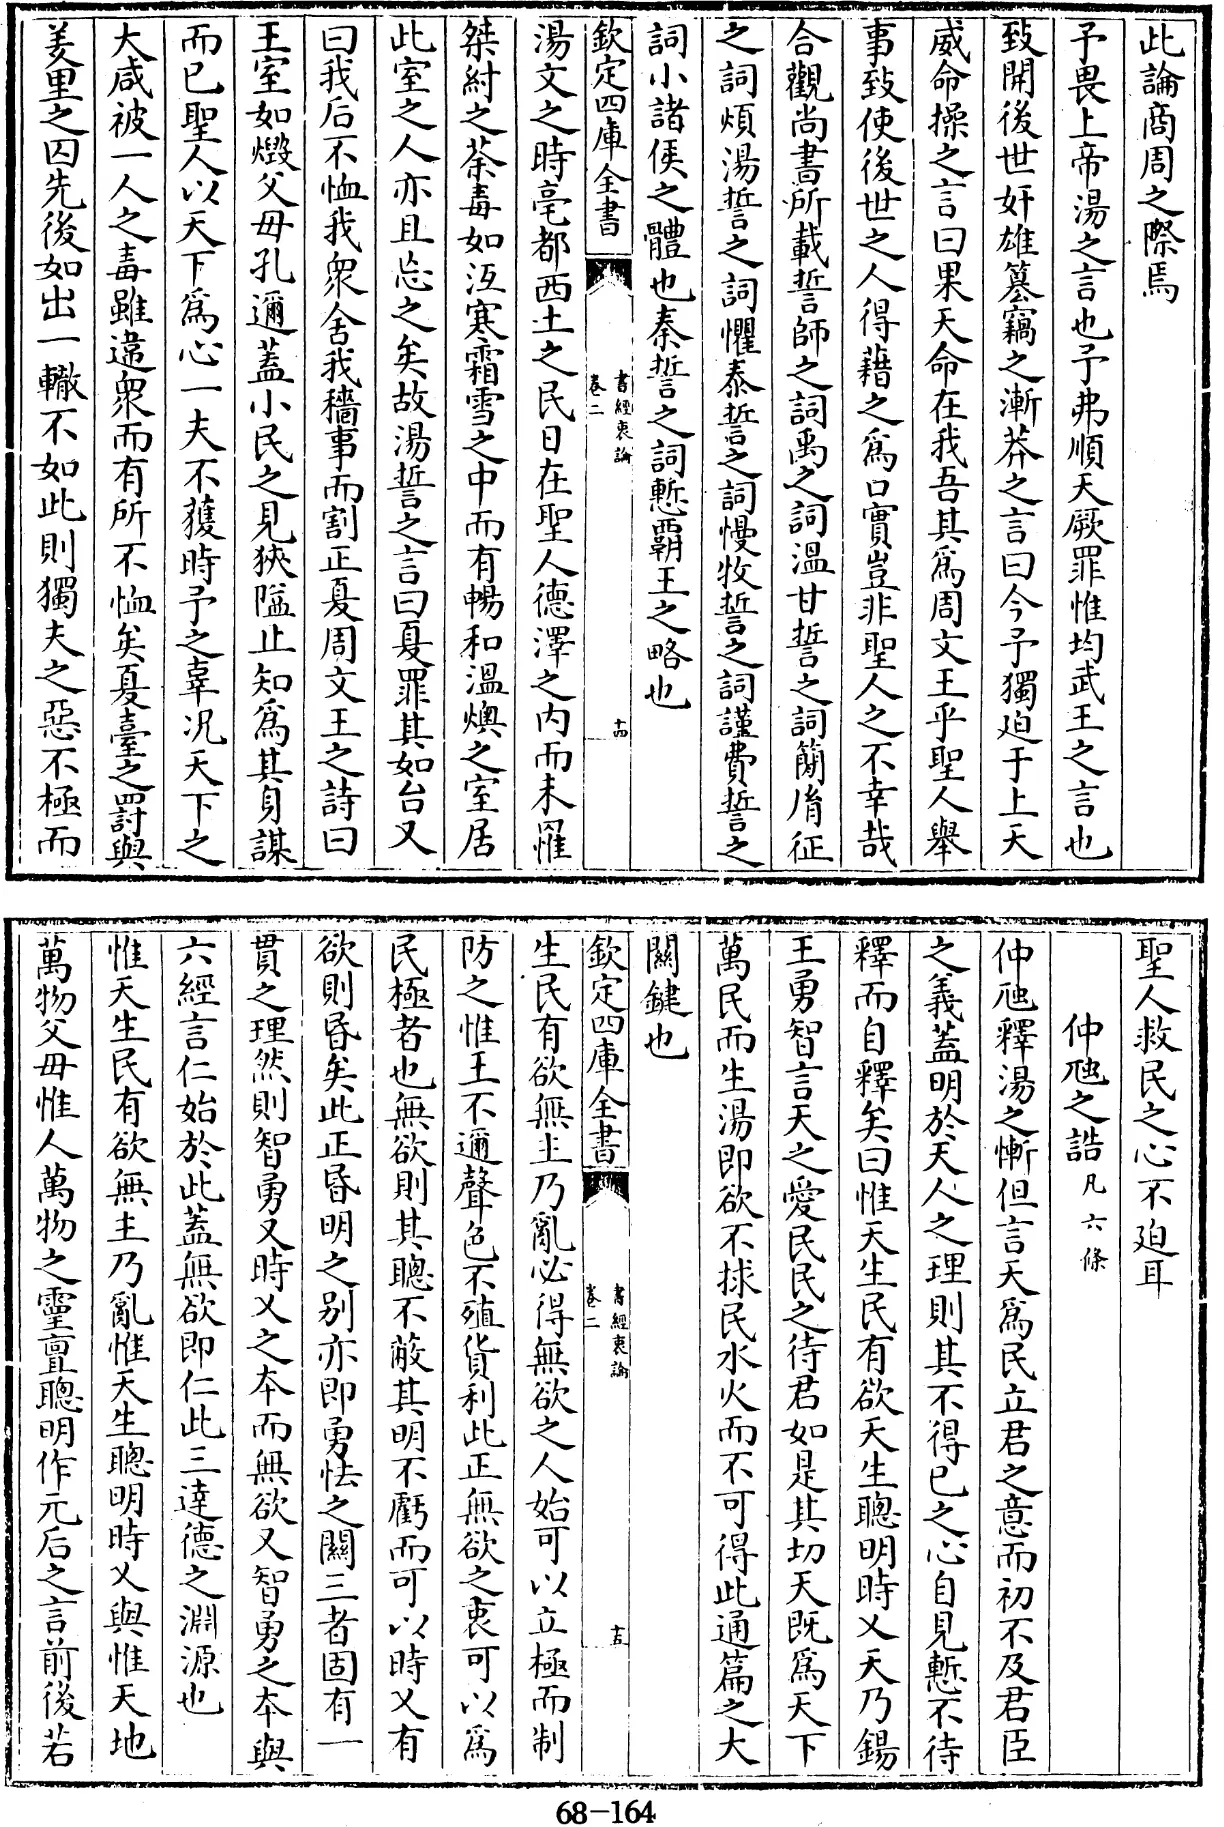 此論商周之際焉
予畏上帝湯之言也予弗順天厥罪惟均武王之言也
致開後世奸雄簒竊之漸莽之言曰今予獨迫于上天
威命操之言曰果天命在我吾其為周文王乎聖人舉
事致使後世之人得藉之為口實豈非聖人之不幸哉
合觀尚書所載誓師之詞禹之詞溫甘誓之詞簡𦙍征
之詞煩湯誓之詞懼泰誓之詞慢牧誓之詞謹費誓之
詞小諸侯之體也秦誓之詞慙覇王之略也
欽定四庫全書
書經衷論
卷二
十四
湯文之時亳都西土之民日在聖人德澤之内而未罹
桀紂之荼毒如沍寒霜雪之中而有暢和溫燠之室居
此室之人亦且忘之矣故湯誓之言曰夏罪其如台又
曰我后不恤我衆舍我穡事而割正夏周文王之詩曰
王室如燬父母孔邇蓋小民之見狹隘止知為其身謀
而已聖人以天下為心一夫不獲時予之辜况天下之
大咸被一人之毒雖違衆而有所不恤矣夏臺之罸與
羑里之囚先後如出一轍不如此則獨夫之惡不極而
聖人救民之心不迫耳
仲虺之誥凡六條
仲虺釋湯之慚但言天為民立君之意而初不及君臣
之義蓋明於天人之理則其不得已之心自見慙不待
釋而自釋矣曰惟天生民有欲天生聰明時乂天乃錫
王勇智言天之愛民民之待君如是其切天既為天下
萬民而生湯即欲不拯民水火而不可得此通篇之大
關鍵也
欽定四庫全書
書經衷論
卷二
十五
生民有欲無主乃亂必得無欲之人始可以立極而制
防之惟王不邇聲色不殖貨利此正無欲之衷可以為
民極者也無欲則其聰不蔽其明不虧而可以時乂有
欲則昏矣此正昏明之别亦即勇怯之關三者固有一
貫之理然則智勇又時乂之本而無欲又智勇之本與
六經言仁始於此蓋無欲即仁此三達德之淵源也
惟天生民有欲無主乃亂惟天生聰明時乂與惟天地
萬物父母惟人萬物之靈亶聰明作元后之言前後若
68-164